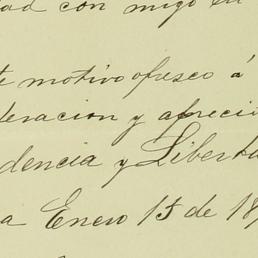 dad con migo en
te motivo ofresco á
deracion y apreci
dencia y Liberta
a Enero 15 de 18